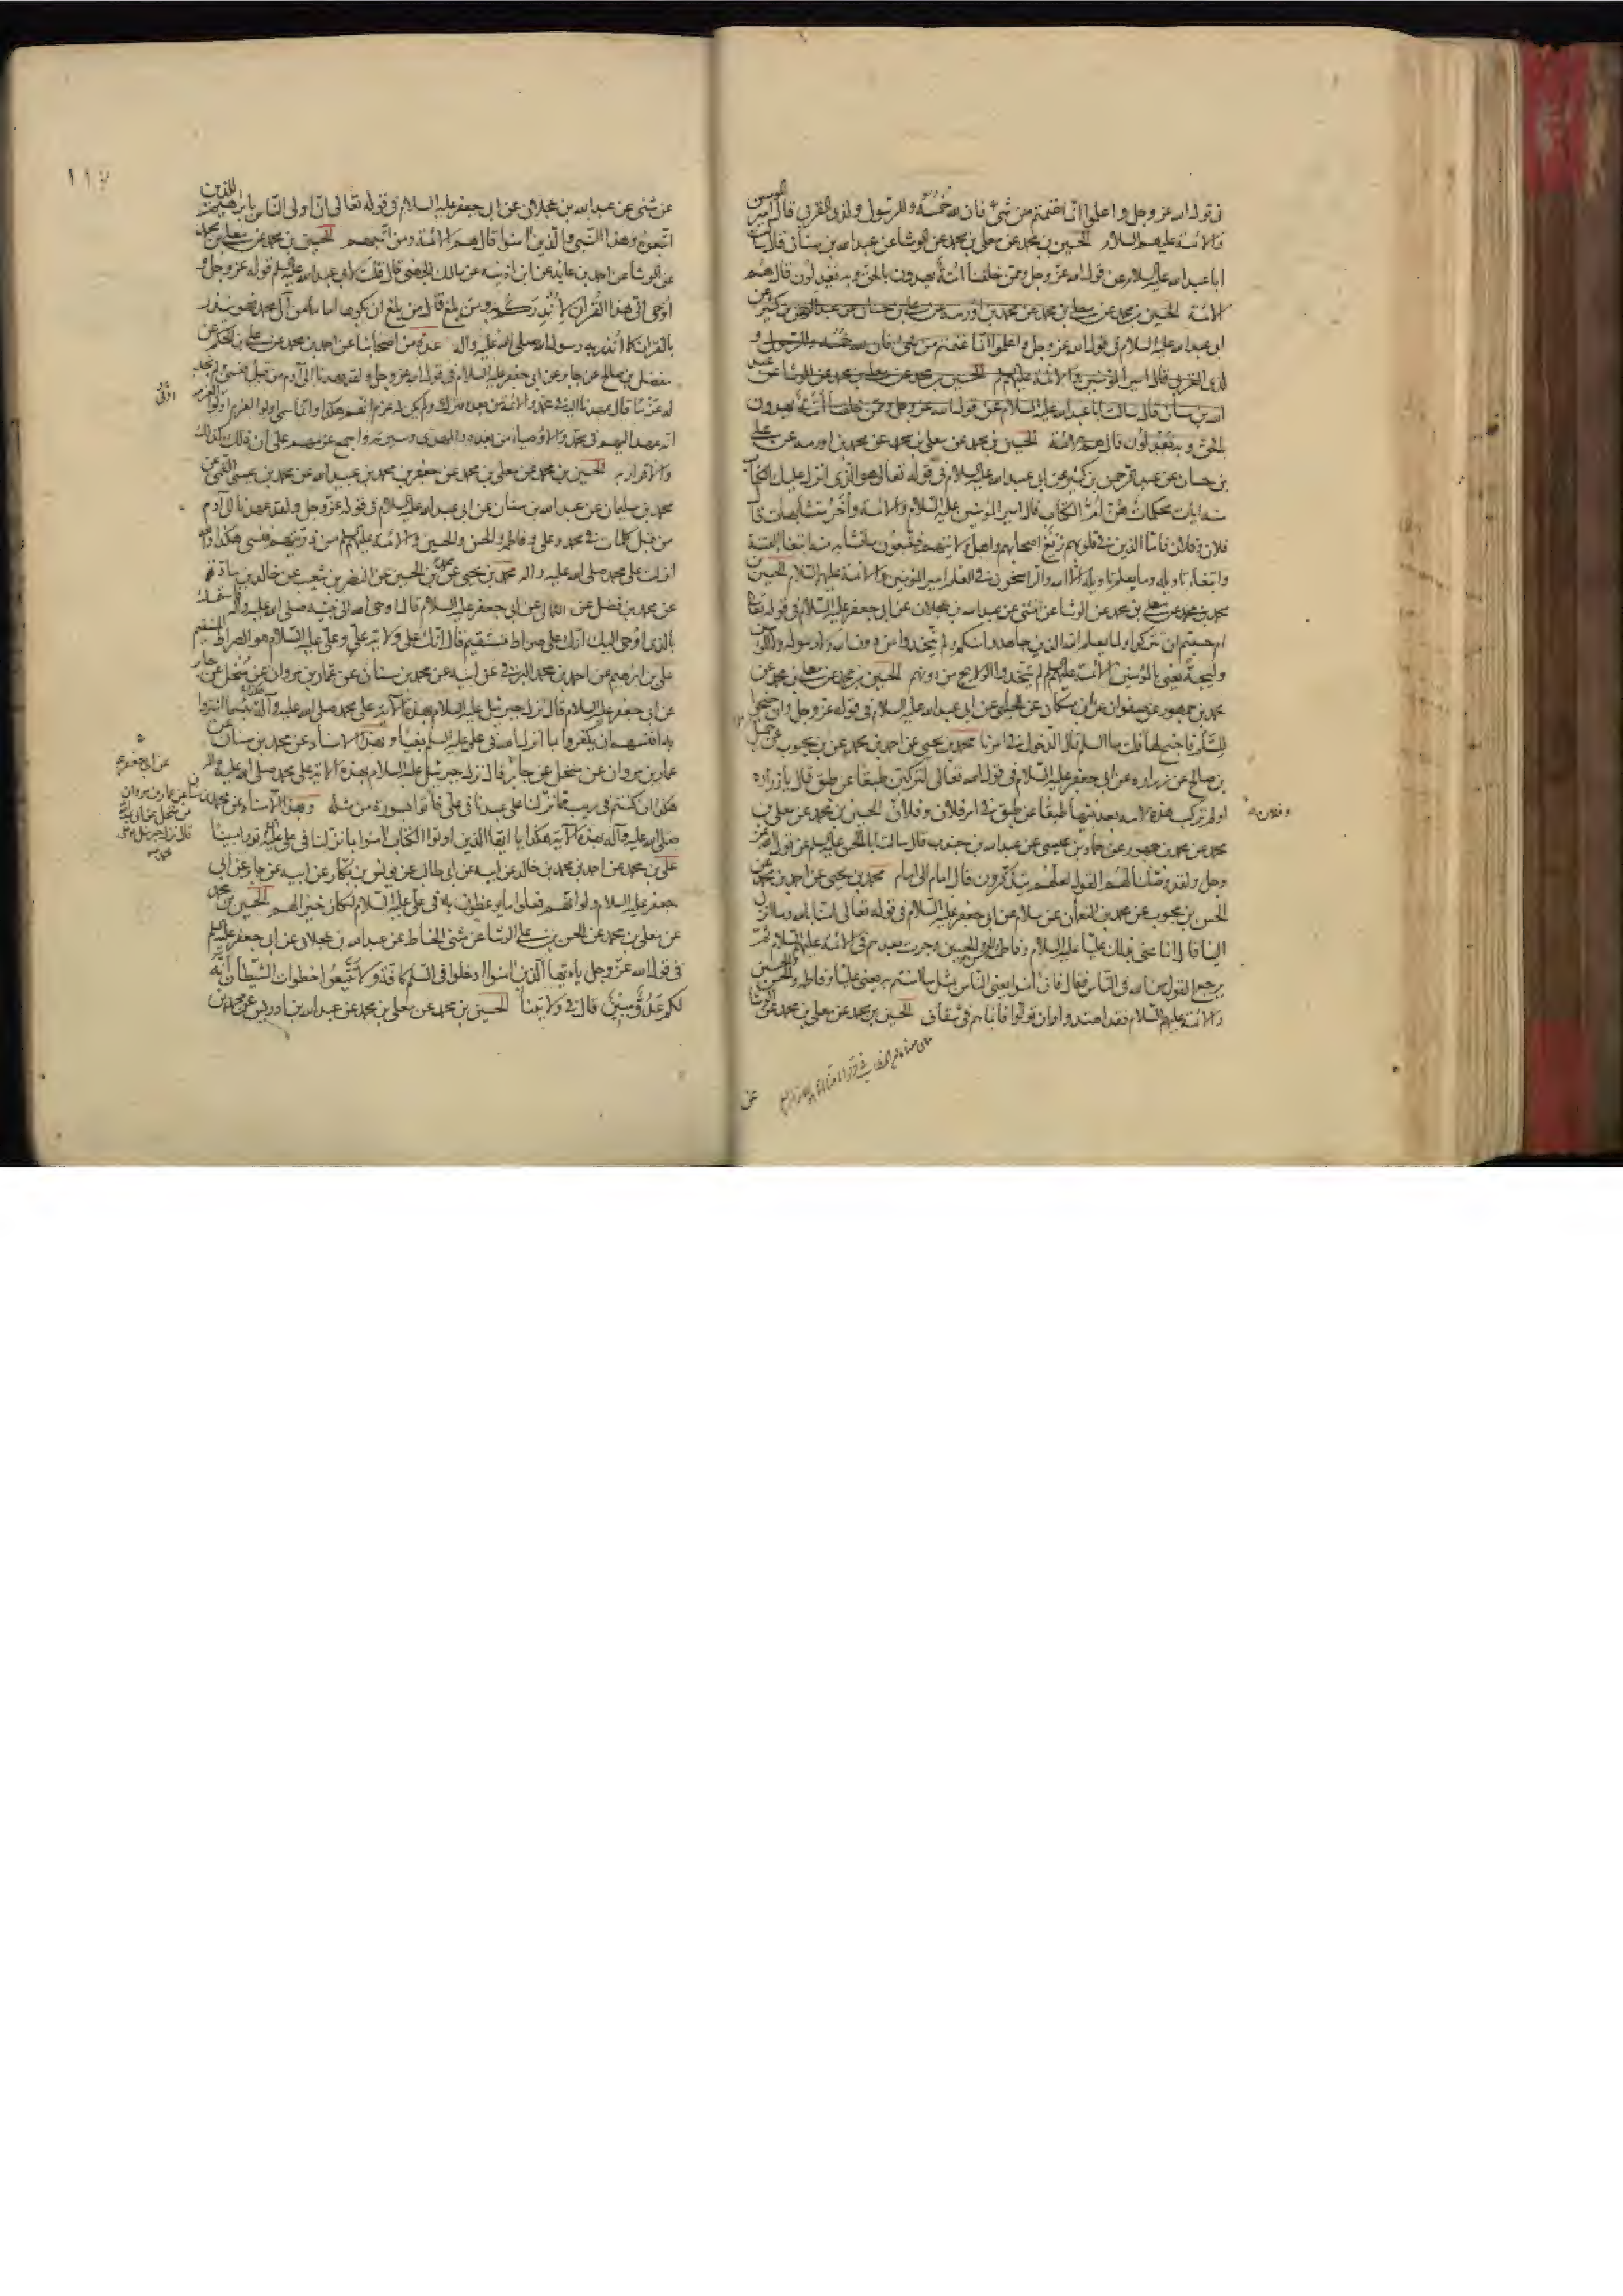 فى قول الله عز وجل واعلموا انما غنمتم من شئ فان لله خمسه وللرسول ولذى القربى قال امير المومنين
والائمة عليهم السلام الحسين بن محمد عن معلى بن محمد عن الوشا عن عبد الله بن سنان قال سالت
ابا عبد الله عليه السلام عن قول الله عز وجل وممن خلقنا امة يهدون بالحق وبه يعدلون قال هم
الائمة الحسين بن محمد عن معلى بن محمد عن محمد بن اورمه عن على بن حسان عن عبد الرحمن بن كثير عن
ابى عبد الله عليه السلام فى قول الله عز وجل واعلموا انما غنمتم من شئ فان لله خمسه وللرسول و
لذى القربى قال امير المؤمنين والائمة عليهم الحسين بن محمد عن معلى بن محمد عن الوشا عن عبد
الله بن سنان قال سالت ابا عبد الله عليه السلام عن قول الله عز وجل وممن خلقنا امة يهدون
بالحق وبه يعدلون قال هم الائمة الحسين بن محمد عن معلى بن محمد عن محمد بن اورمه عن على
بن حسان عن عبد الرحمن بن كثير عن ابى عبد الله عليه السلام فى قوله تعالى هو الذى انزل عليك الكتاب
منه ايات محكمات هن ام الكتاب قال امير المؤمنين عليه السلام والائمة واخر متشابهات قال
فلان وفلان فاما الذين فى قلوبهم زيغ اصحابهم واهل ولايتهم فيتبعون ما تشابه منه ابتغاء الفتنة
وابتغاء تاويله وما يعلم تاويله الا الله والراسخون فى العلم امير المؤمنين والائمة عليهم السلام الحسين بن
محمد عن معلى بن محمد عن الوشا عن مثنى عن عبد الله بن عجلان عن ابى جعفر عليه السلام فى قوله تعالى
ام حسبتم ان تتركوا ولما يعلم الله الذين جاهدوا منكم ولم يتخذوا من دون الله ولا رسوله ولا المؤمنين
وليجة يعنى بالمؤمنين الائمة عليهم لم يتخذوا الولايج من دونهم الحسين بن محمد عن معلى بن محمد عن
محمد بن جمهور عن صفوان عن ابن مسكان عن الحلبى عن ابى عبد الله عليه السلام فى قوله عز وجل وان جنحوا
للسلم فاجنح لها قلت ما السلم قال الدخول فى امرنا محمد بن يحيى عن احمد بن محمد عن بن محبوب عن جميل
بن صالح عن زراره عن ابى جعفر عليه السلام فى قوله تعالى لتركبن طبقا عن طبق قال يا زراره
اولم تركب هذه الامه بعد نبيها طبقا عن طبق فى امر فلان وفلان الحسين بن محمد عن معلى بن
وفلان
محمد عن محمد بن جمهور عن حماد بن عيسى عن عبد الله بن جندب قال سالت ابا الحسن عليه السلم عن قول الله عز
وجل ولقد وصلنا لهم القول لعلهم يتذكرون قال امام الى امام محمد بن يحيى عن احمد بن محمد عن
الحسن بن محبوب عن محمد بن النعمان عن سلام عن ابى جعفر عليه السلام فى قوله تعالى امنا بالله وما انزل
الينا قال انما عنى بذلك عليا عليه السلام وفاطمة والحسن والحسين وجرت بعدهم فى الائمة عليهم السلام ثم
يرجع القول من الله فى الناس فقال فان امنوا يعنى الناس بمثل ما امنتم به يعنى عليا وفاطمه والحسن والحسين
والائمة عليهم السلام فقد اهتدوا وان تولوا فانما هم فى شقاق الحسين بن محمد عن معلى بن محمد عن الوشا
عن
١١٧
عن مثنى عن عبد الله بن عجلان عن ابى جعفر عليه السلام فى قوله تعالى ان اولى الناس بابراهيم للذين
اتبعوه وهذا النبى والذين امنوا قال هم الائمة ومن اتبعهم الحسين بن محمد عن معلى بن محمد
عن الوشا عن احمد بن عايذ عن ابن اذينه عن مالك الجهنى قال قلت لابى عبد الله عليه السلم قوله عز وجل و
اوحى الى هذا القران لانذركم به ومن بلغ قال من بلغ ان يكون اماما من آل محمد فهو ينذر
بالقران كما انذر به رسول الله صلى الله عليه واله عدة من اصحابنا عن احمد بن محمد عن على بن الحكم عن
مفضل بن صالح عن جابر عن ابى جعفر عليه السلام فى قول الله عز وجل ولقد عهدنا الى آدم من قبل فنسى ولم نجد
له عزما قال عهدنا اليه فى محمد والائمة من بعده فترك ولم يكن له عزم انهم هكذا وانما سمى اولوا العزم اولوا العزم
انه عهد اليهم فى محمد والاوصياء من بعده والمهدى وسيرته واجمع عزمهم على ان ذلك كذلك
والاقرار به الحسين بن محمد عن معلى بن محمد عن جعفر بن محمد بن عبيد الله عن محمد بن عيسى القمى عن
محمد بن سليمان عن عبد الله بن سنان عن ابى عبد الله عليه السلام فى قوله عز وجل ولقد عهدنا الى آدم
من قبل كلمات فى محمد وعلى وفاطمة والحسن والحسين والائمة عليهم السلم من ذريتهم فنسى هكذا والله
انزلت على محمد صلى الله عليه واله محمد بن يحيى عن محمد بن الحسين عن النضر بن شعيب عن خالد بن ماد
عن محمد بن فضل عن الثمالى عن ابى جعفر عليه السلام قال اوحى الله الى نبيه صلى الله عليه واله فاستمسك
بالذى اوحى اليك انك على صراط مستقيم قال انك على ولاية على وعلى عليه السلام هو الصراط المستقيم
على بن ابرهيم عن احمد بن محمد البرقى عن ابيه عن محمد بن سنان عن عمار بن مروان عن منخل عن جابر
عن ابى جعفر عليه السلام قال نزل جبرئيل عليه السلام بهذه الآية على محمد صلى الله عليه وآله هكذا بئسما اشتروا
به انفسهم ان يكفروا بما انزل الله فى على عليه السلم بغيا وبهذا الاسناد عن محمد بن سنان عن
عمار بن مروان عن منخل عن جابر قال نزل جبرئيل عليه السلام بهذه الآية على محمد صلى الله عليه واله
هكذا ان كنتم فى ريب مما نزلنا على عبدنا فى على فأتوا بسورة من مثله وبهذا الاسناد عن محمد بن سنان عن عمار بن مروان
عن منخل عن ابى عبد الله
قال نزل جبرئيل على
محمد
صلى الله عليه وآله بهذه الآية هكذا يا ايها الذين اوتوا الكتاب امنوا بما نزلنا فى على نورا مبينا
على بن محمد عن احمد بن محمد بن خالد عن ابيه عن ابى طالب عن يونس بن بكار عن ابيه عن جابر عن ابى
جعفر عليه السلام ولو انهم فعلوا ما يوعظون به فى على عليه السلام لكان خيرا لهم الحسين بن محمد
عن معلى بن محمد عن الحسن بن على الوشا عن مثنى الحناط عن عبد الله بن عجلان عن ابى جعفر عليه السلم
فى قول الله عز وجل يا ايها الذين امنوا ادخلوا فى السلم كافة ولا تتبعوا خطوات الشيطان انه
لكم عدو مبين قال فى ولايتنا الحسين بن محمد عن معلى بن محمد عن عبد الله بن ادريس عن محمد بن